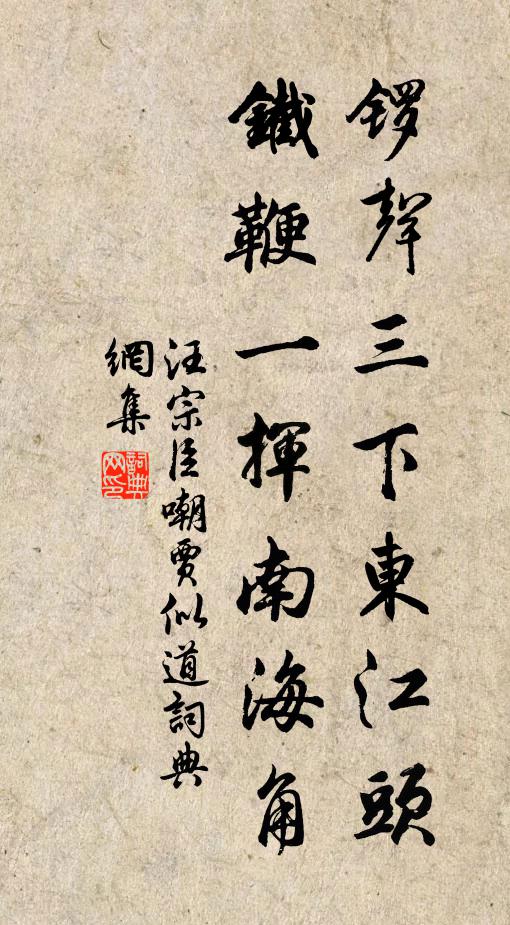 锣聲三下東江頭
鐵鞭一揮南海角
汪宗臣嘲賈似道詞典
網集
詞典網印